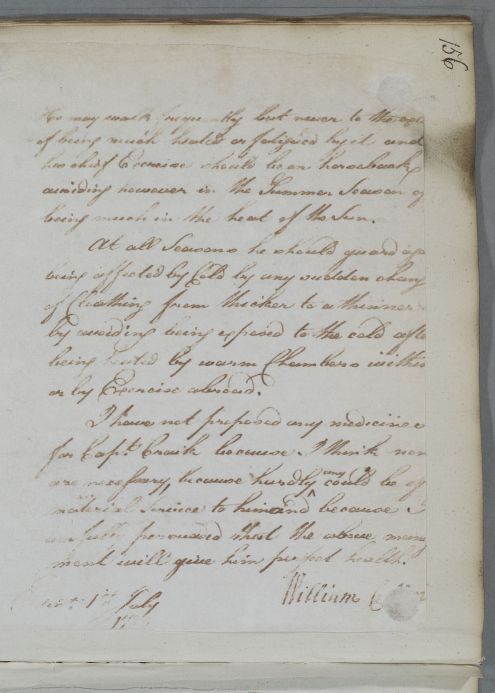 156
He may walk frequently but never to the
of being much heated or fatigued by it and
his chief Exercise should be on horseback
avoiding however in the Summer Season
being much in the heat of the Sun.
At all Seasons he should guard
being affected by Cold by any sudden chang
of Cloathing from thicker to a thinner
by avoiding being exposed to the cold afte
being heated by warm Chambers within
or by Exercise abroad.
I have not proposed any medicine
for Capt Craik because I think non
are necessary, because hardly any could be of
material Service to him and because I
fully persuaded that the above mana
ment will give him perfect health.
William
1st July